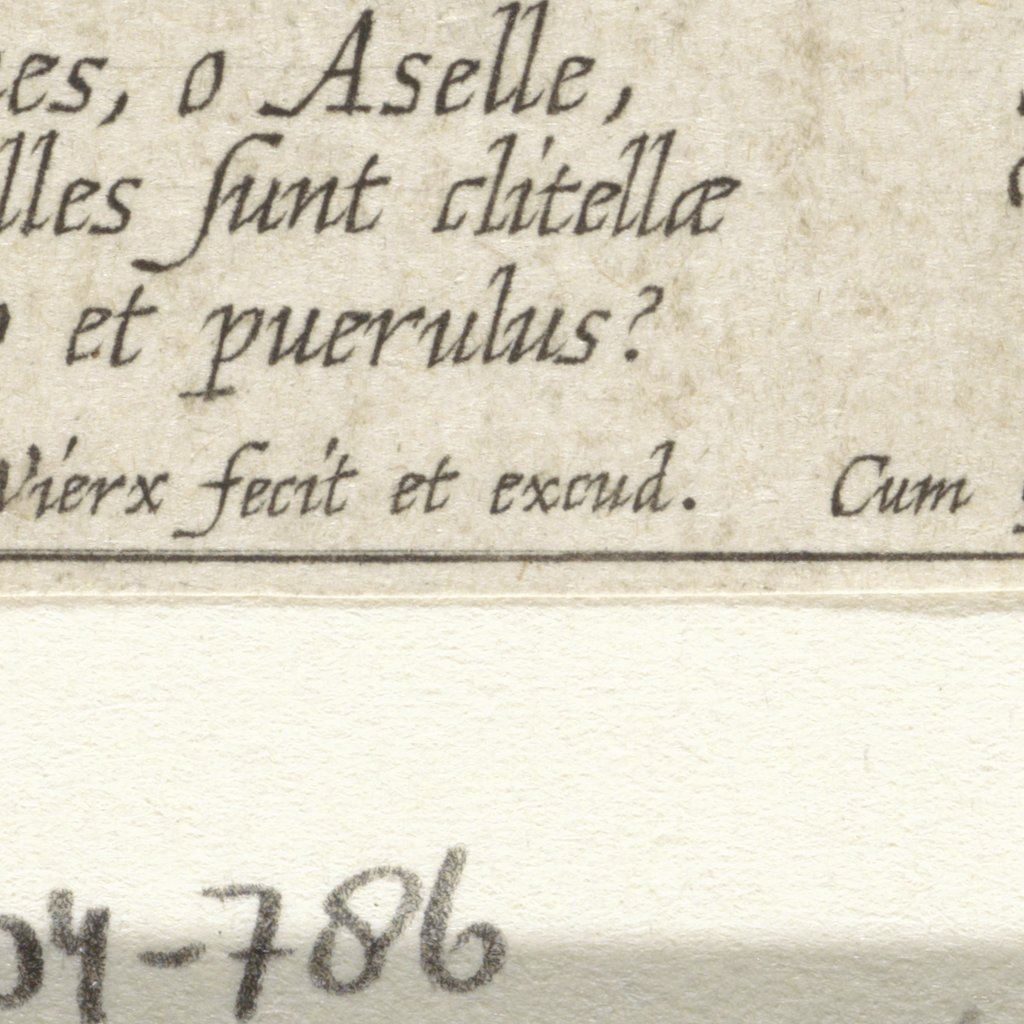 o Aselle,
ſunt clitellæ
et puerulus?
Vierx fecit et excud. Cum
04-786